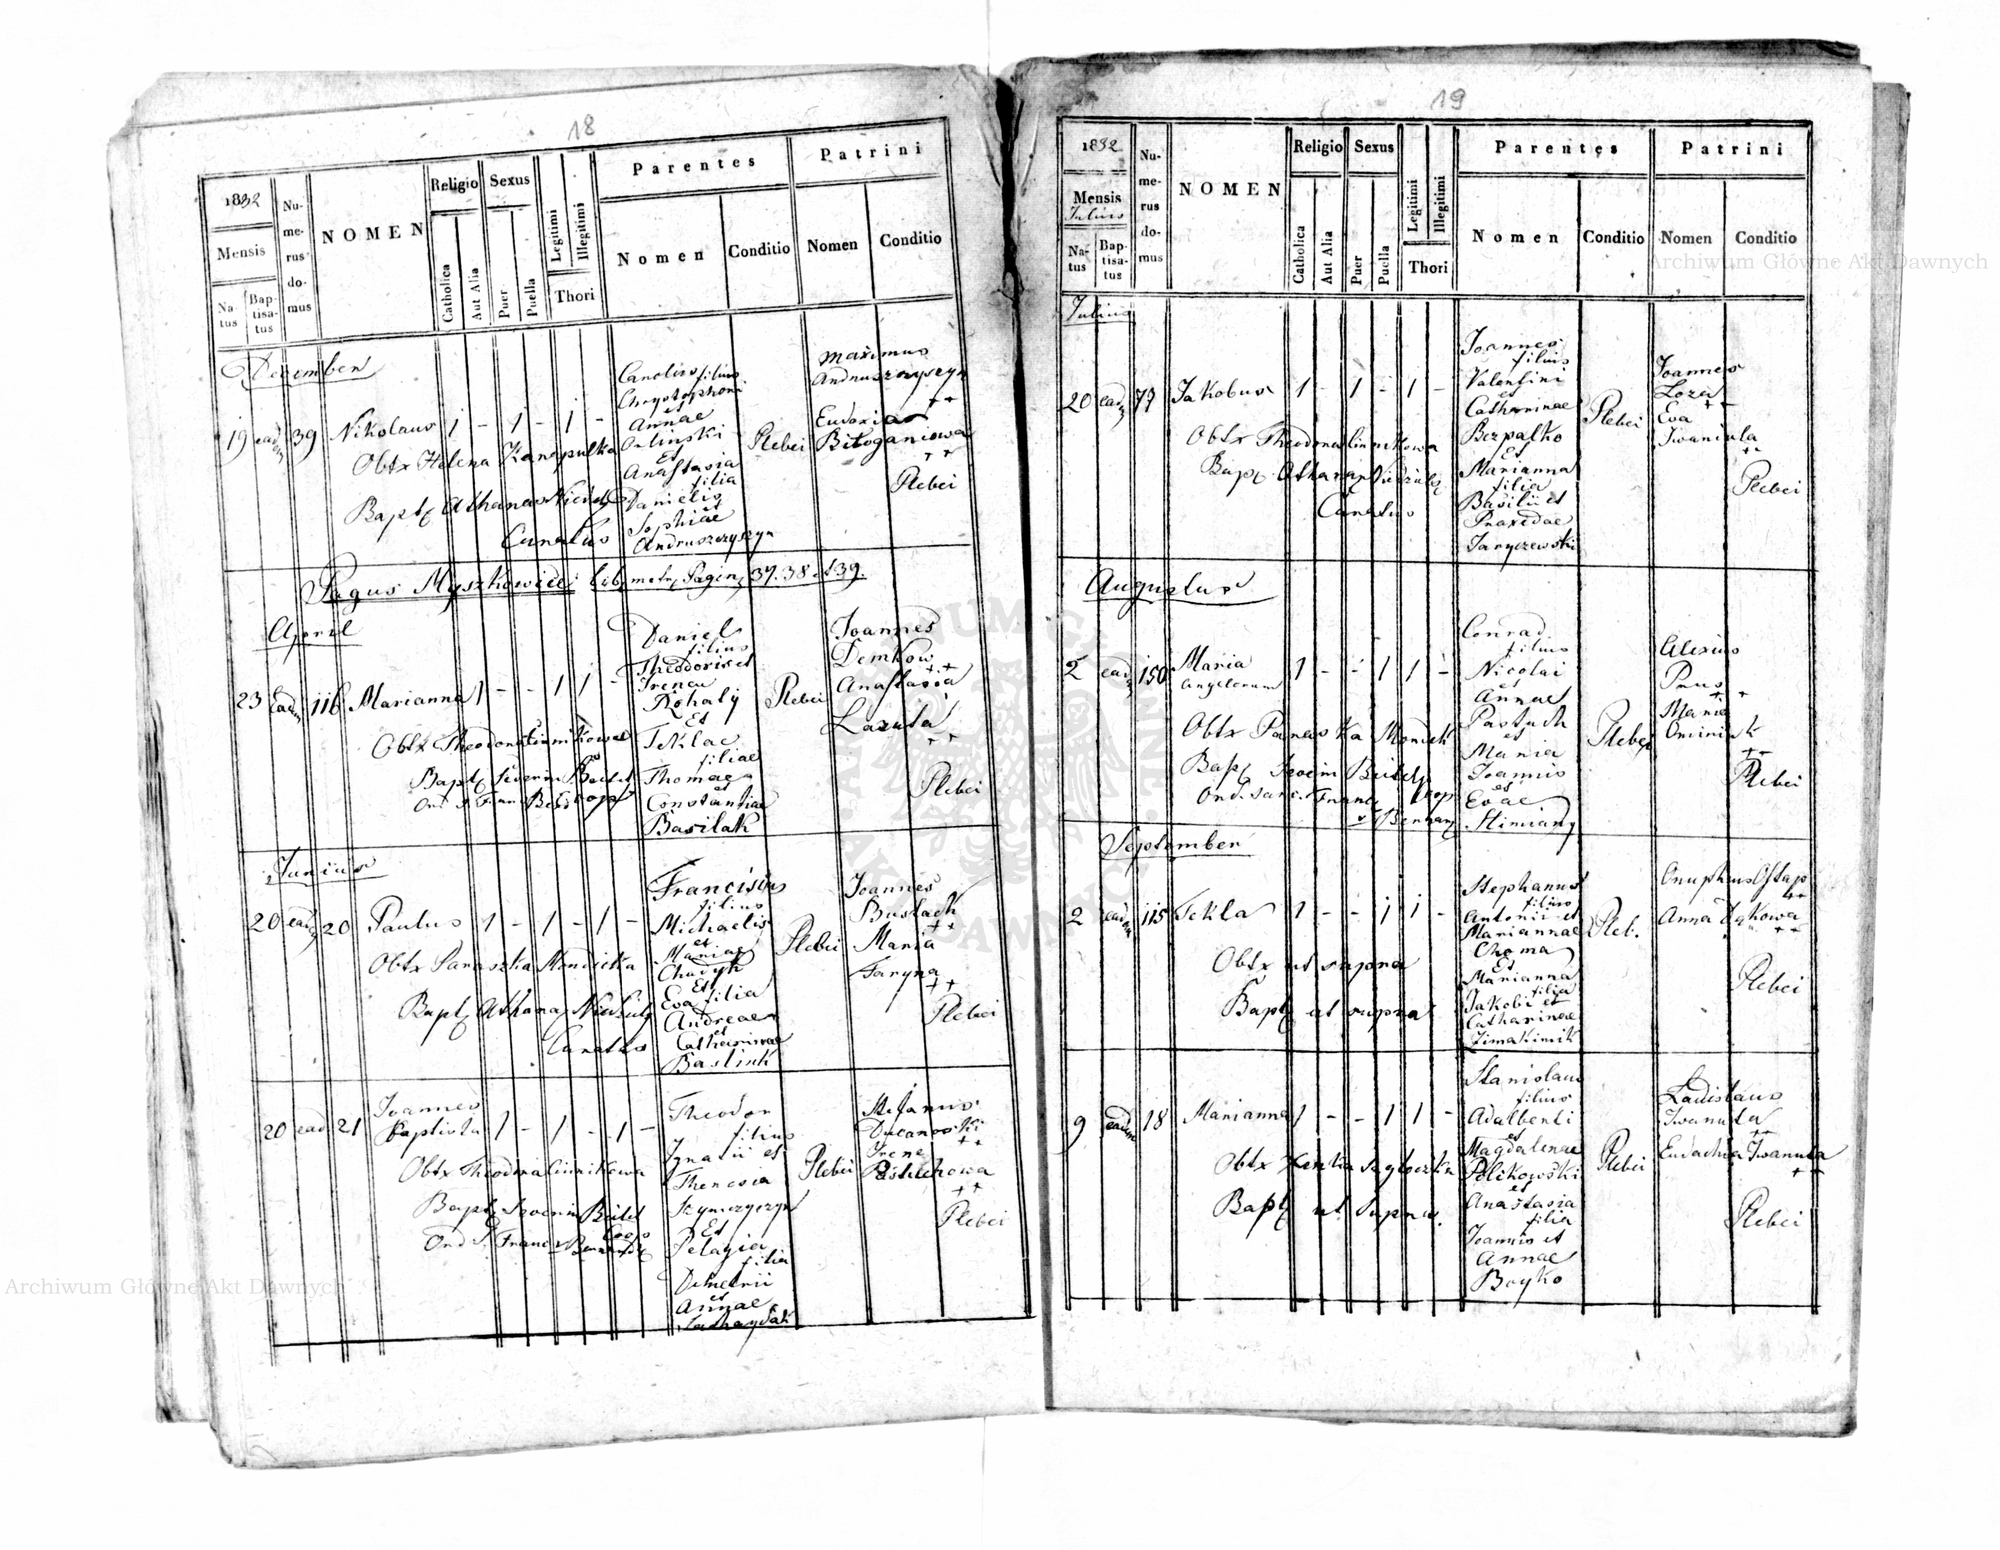 18
1832
Mensis
Na-
tus
Bap-
tisa-
tus
Nu-
me-
rus
do-
mus
NOMEN
Religio
Catholica
Aut Alia
Sexus
Puer
Puella
Legitimi
Illegitimi
Thori
Parentes
Nomen
Conditio
Patrini
Nomen
Conditio
December
19 ead 39 Nikolaus 1 - 1 - 1 -
Obtx Helena Kanapulka
Bapt Athanas
Curatus
Carolius filius
Chrystophori
et
Annae
Orlinski
Et
Anastasia
filia
Danielis
et
Sophiae
Andruszczyszyn
Plebei
Maximus
Andruszczyszyn
++
Eudoxia
Bitoganiowa
++
Plebei
Pagus Myszkowice Lib. metr. Pagin. 37. 38 et 39.
April
23 Ead 116 Marianna 1 - - 1 1 -
Obtx Theodora Linnikowa
Bapt Severin
Ord. S. Franc
Daniel
filius
Theodoris et
Irenae
Rohaly
Et
Teklae
filiae
Thomae
et
Constantiae
Basilak
Plebei
Joannes
Demkow
++
Anastasia
Lazuta
++
Plebei
Junius
20 ead 20 Paulus 1 - 1 - 1 -
Obtx Paraszka
Bapt Athanas
Curatus
Franciscus
filius
Michaelis
et
Mariae
Chudyk
Et
Eva filia
Andreae
et
Catharinae
Baslink
Plebei
Joannes
Bustach
++
Maria
Taryna
++
Plebei
20 ead 21 Joannes
Baptista 1 - 1 - 1 -
Obtx Theodora Linnikowa
Bapt Severin
Ord. S. Franc
Theodor
filius
Ignatii et
Theresia
Szymczyszyn
Et
Pelagia
filia
Demetrii
et
Annae
Plebei
Stefanus
++
Irene
Pastuchowa
++
Plebei
19
1832
Mensis
Julius
Na-
tus
Bap-
tisa-
tus
Nu-
me-
rus
do-
mus
NOMEN
Religio
Catholica
Aut Alia
Sexus
Puer
Puella
Legitimi
Illegitimi
Thori
Parentes
Nomen
Conditio
Patrini
Nomen
Conditio
Julius
20 ead 77 Jakobus 1 - 1 - 1 -
Obtx Theodora Linnikowa
Bapt Athanas
Curatus
Joannes
filius
Valentini
et
Catharinae
Bezpalko
Et
Marianna
filia
Basilii et
Praxedae
Jaryczewski
Plebei
Joannes
Loza
++
Eva
Iwaniuta
++
Plebei
Augustus
2 ead 150 Maria
Angelorum 1 - - 1 1 -
Obtx Paraska
Bapt
Ord. Sanc. Franc
Conrad
filius
Nicolai
et
Annae
Pastuch
et
Maria
Joannis
et
Evae
Plebei
Alexius
Prus
++
Maria
++
Plebei
September
2 ead 115 Tekla 1 - - 1 1 -
Obtx ut supra
Bapt ut supra
Stephanus
filius
Antonii et
Mariannae
Choma
Et
Marianna
filia
Jakobi et
Catharinae
Pleb.
Onuphrius Ostap
++
Anna
++
Plebei
9 eadem 18 Marianna 1 - - 1 1 -
Obtx
Bapt ut Supra.
Stanislaus
filius
Adalberti
et
Magdalenae
Polikowski
et
Anastasia
filia
Joannis et
Annae
Boyko
Plebei
Ladislaus
Iwanuta
++
Eudochia Iwanuta
++
Plebei
Archiwum Główne Akt Dawnych
Archiwum Główne Akt Dawnych